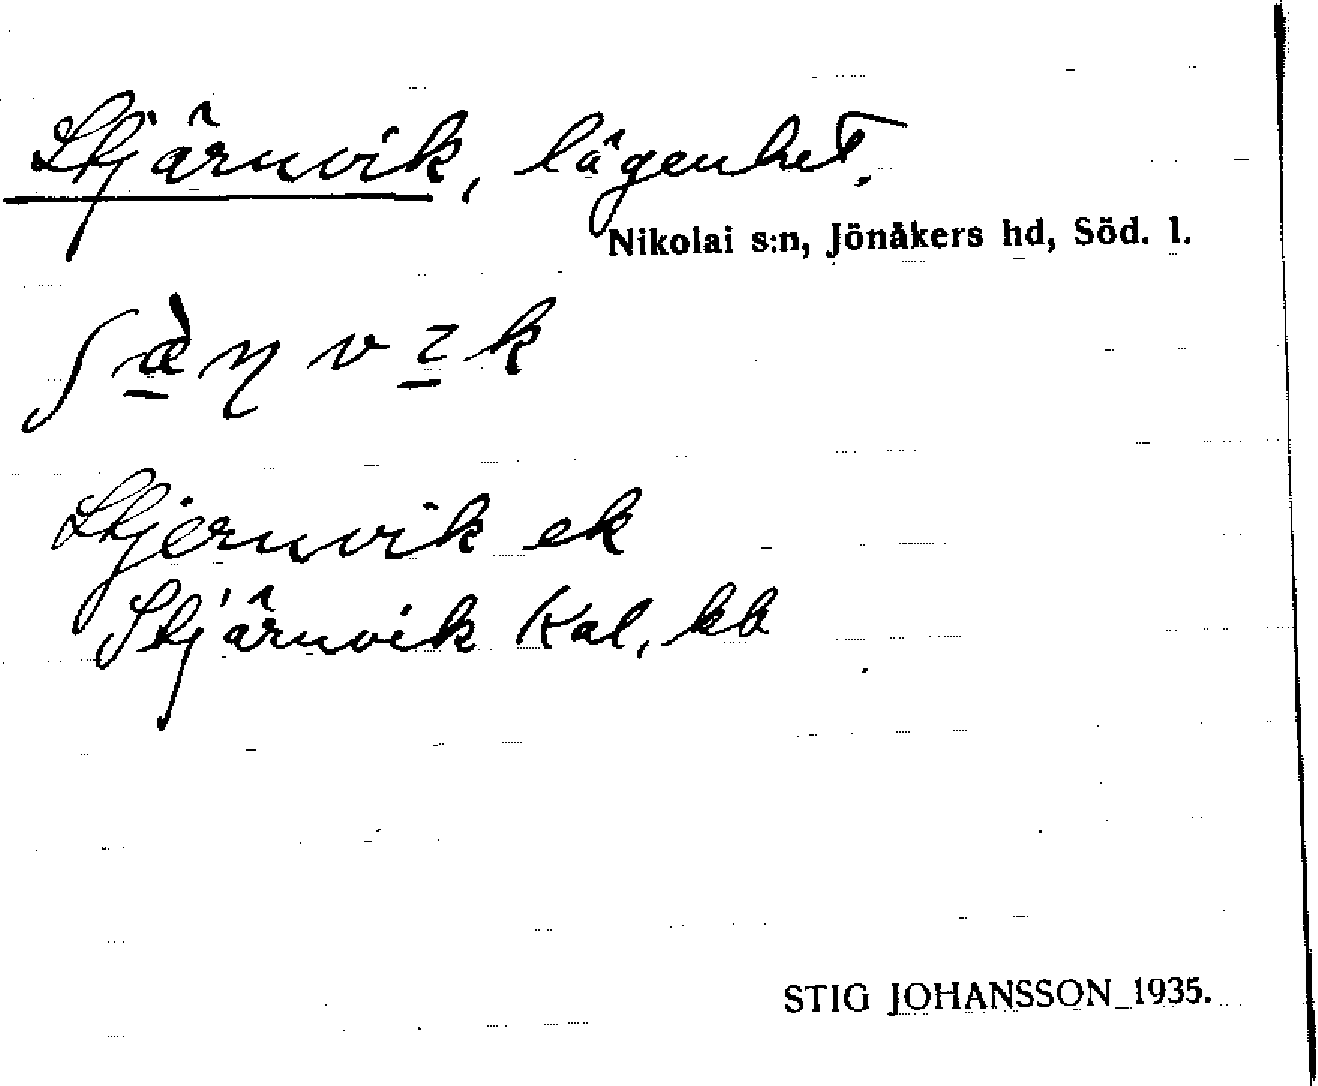 Stjärnvik, lägenhet.
Nikolai s:n, Jönåkers hd, Söd. l.
ʃæ̀ɳvɪk
Stjernvik ek
Stjärnvik Kal, kb
STIG JOHANSSON 1935.